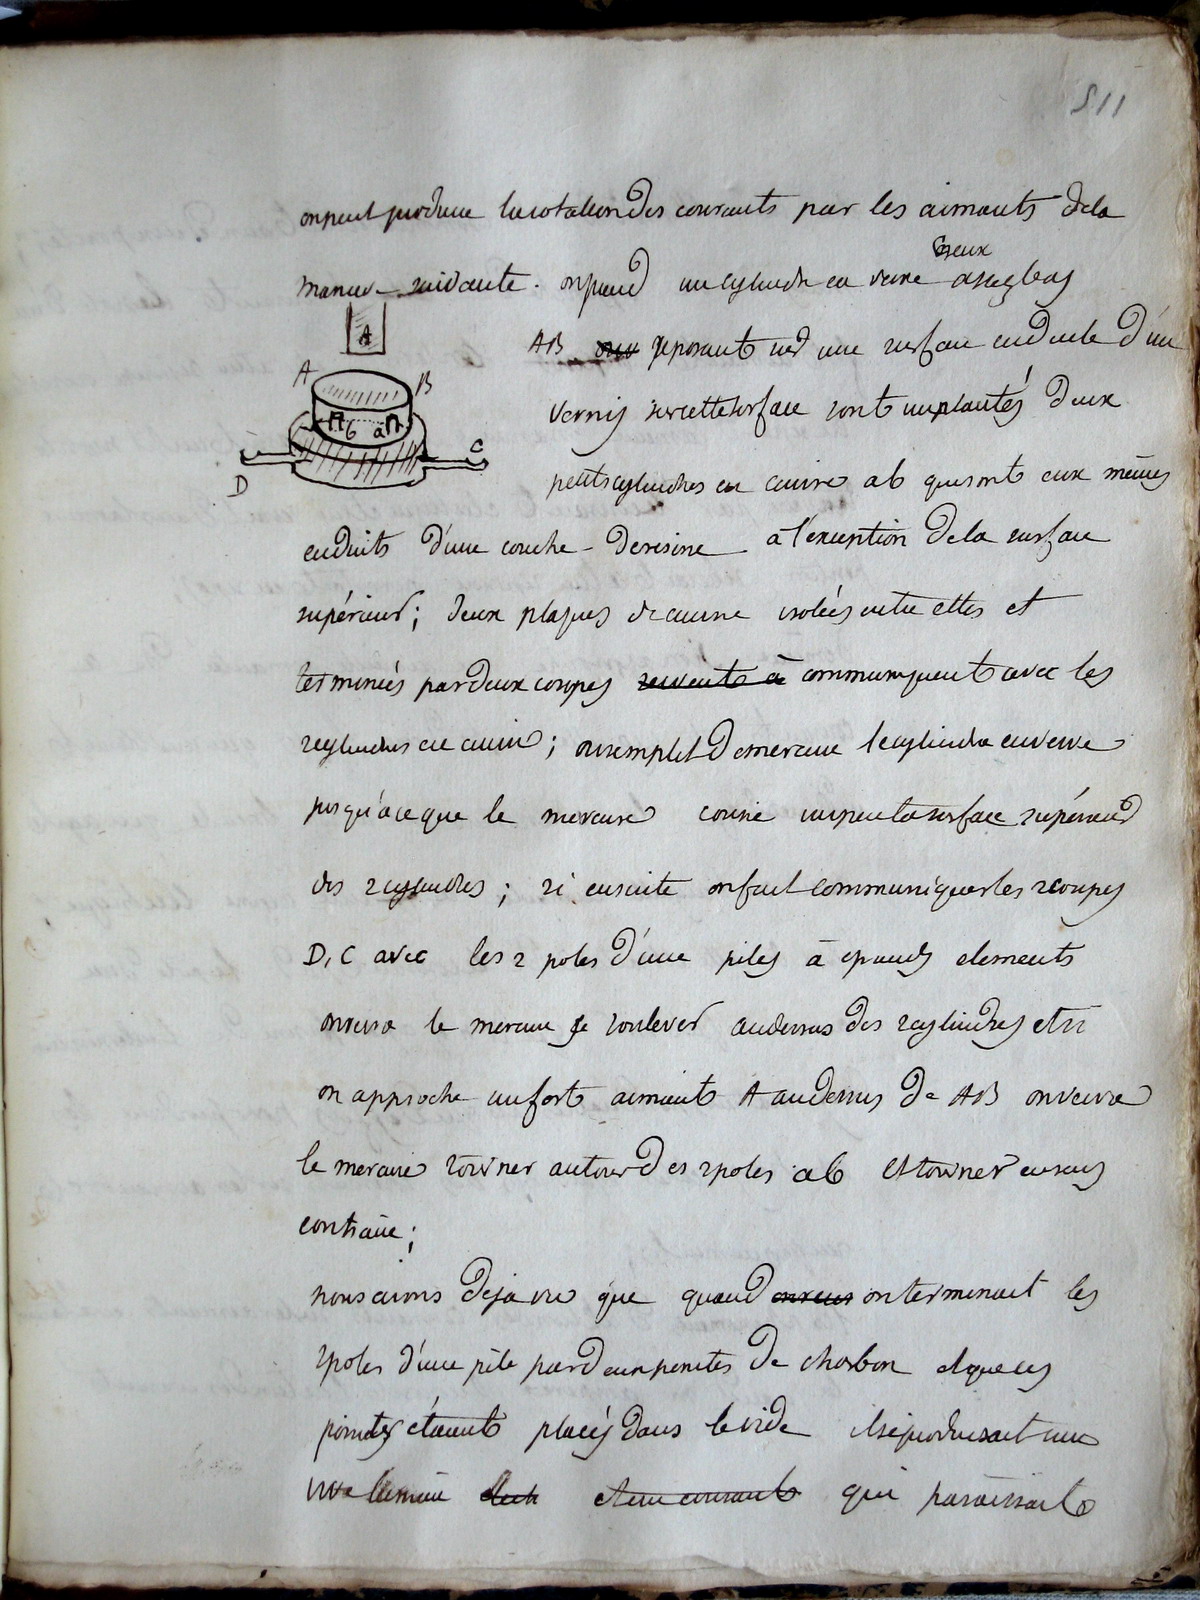 511
on peut produire la rotation des courants par les aimants de la
creux
maniere suivante. on prend un cylindre en verre assez bas
AB ou reposant sur une surface enduite d'un
vernis sur cette surface sont implantés deux
petits cylindres en cuivre ab qui sont eux mêmes
enduits d'une couche de resine a l'exception de la surface
supérieur; deux plaques de cuivre isolées entre elles et
terminées par deux coupes servent à communiquent avec les
2 cylindres de cuivre; on remplit de mercure le cylindre en verre
jusqu'a ce que le mercure couvre un peu la surface supérieur
des 2 cylindres; si ensuite on fait communiquer les 2 coupes
D, C avec les 2 poles d'une piles à grands elements
on verra le mercure se soulever au dessus des 2 cylindres et si
on approche un fort aimant A au dessus de AB on verra
le mercure tourner autour des 2 poles ab et tourner en sens
contraire;
nous avons deja vu que quand on terminait les
2 poles d'une pile par deux pointes de charbon et que ces
pointes étaient placés dans le vide il se produisait une
vive lumiere et un courant qui paraissait
A
A
B
b
a
C
D